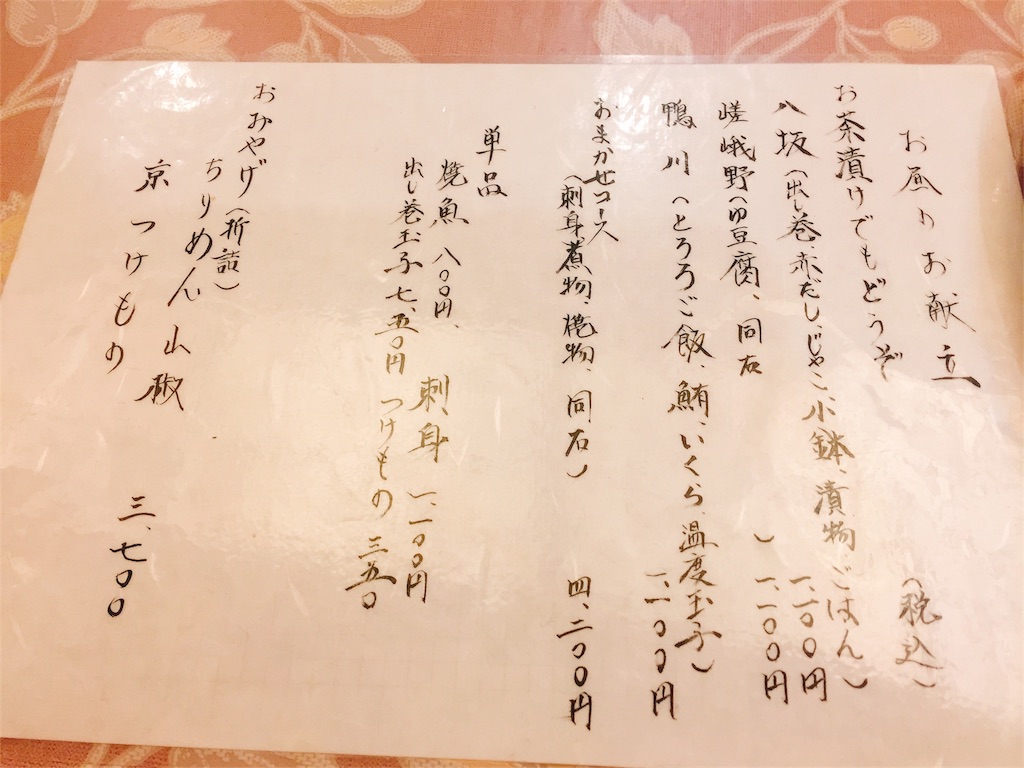 お昼のお献立 (税込)
お茶漬けでもどうぞ
八坂(出し巻、赤だし、じゃこ、小鉢、漬物、ごはん) 一、一〇〇円
嵯峨野(ゆ豆腐、同右 ) 一、一〇〇円
鴨川(とろろご飯、鮪、いくら、温度玉子) 一、一〇〇円
おまかせコース
(刺身、煮物、焼物、同右) 四、二〇〇円
単品
焼魚 八〇〇円、 刺身 一、一〇〇円
出し巻玉子 七、五〇円 つけもの 三五〇
おみやげ(折詰)
ちりめん山椒
京つけもの 三、七〇〇